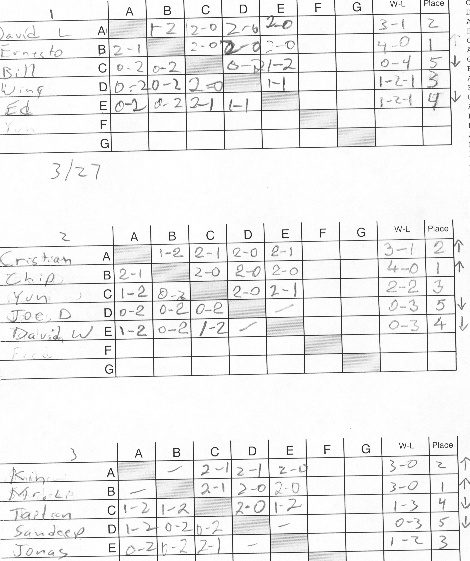 1 A B C D E F G W-L Place
David L A 1-2 2-0 2-0 2-0 3-1 2
Ernesto B 2-1 2-0 2-0 2-0 4-0 1 ↑
Bill C 0-2 0-2 0-2 1-2 0-4 5 ↓
Wing D 0-2 0-2 2-0 1-1 1-2-1 3
Ed E 0-2 0-2 2-1 1-1 1-2-1 4 ↓
Yun F
G
3/27
2 A B C D E F G W-L Place
Cristian A 1-2 2-1 2-0 2-1 3-1 2 ↑
Chip B 2-1 2-0 2-0 2-0 4-0 1 ↑
Yun C 1-2 0-2 2-0 2-1 2-2 3
Joe D D 0-2 0-2 0-2 — 0-3 5 ↓
David W E 1-2 0-2 1-2 — 0-3 4 ↓
F
G
3 A B C D E F G W-L Place
Kin A — 2-1 2-1 2-0 3-0 2 ↑
Mr. Li B — 2-1 2-0 2-0 3-0 1 ↑
C 1-2 1-2 2-0 1-2 1-3 4 ↓
Sandeep D 1-2 0-2 0-2 — 0-3 5 ↓
Jonas E 0-2 0-2 2-1 — 1-2 3